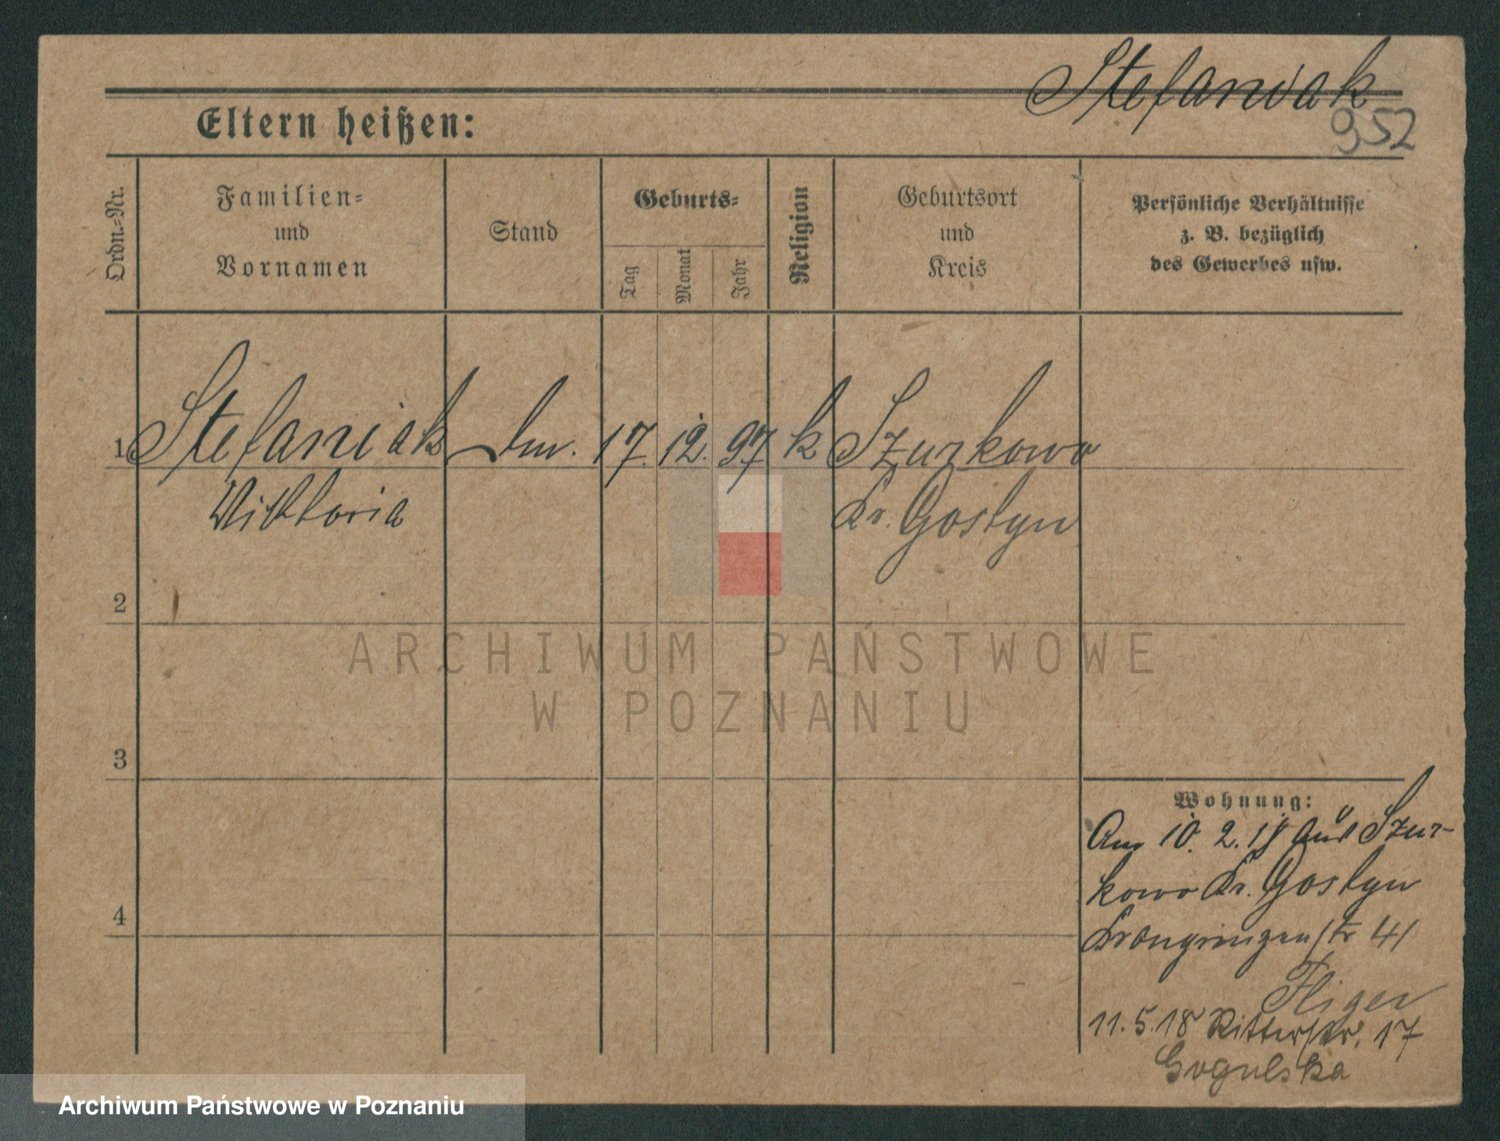 Stefaniak
952
Eltern heißen:
Ordn.-Nr.
Familien-
und
Vornamen
Stand
Geburts-
Tag
Monat
Jahr
Religion
Geburtsort
und
Kreis
Persönliche Verhältnisse
z. B. bezüglich
des Gewerbes usw.
1 Stefaniak 17. 12. 97 k Szurkowo
Viktoria Kr. Gostyn
2
ARCHIWUM PAŃSTWOWE
W POZNANIU
3
Wohnung:
Am 10. 2. 18 aus Szur-
kowo Kr. Gostyn
4
Kronprinzenstr 41
Fliger
11. 5. 18 Ritterstr. 17
Gogulska
Archiwum Państwowe w Poznaniu